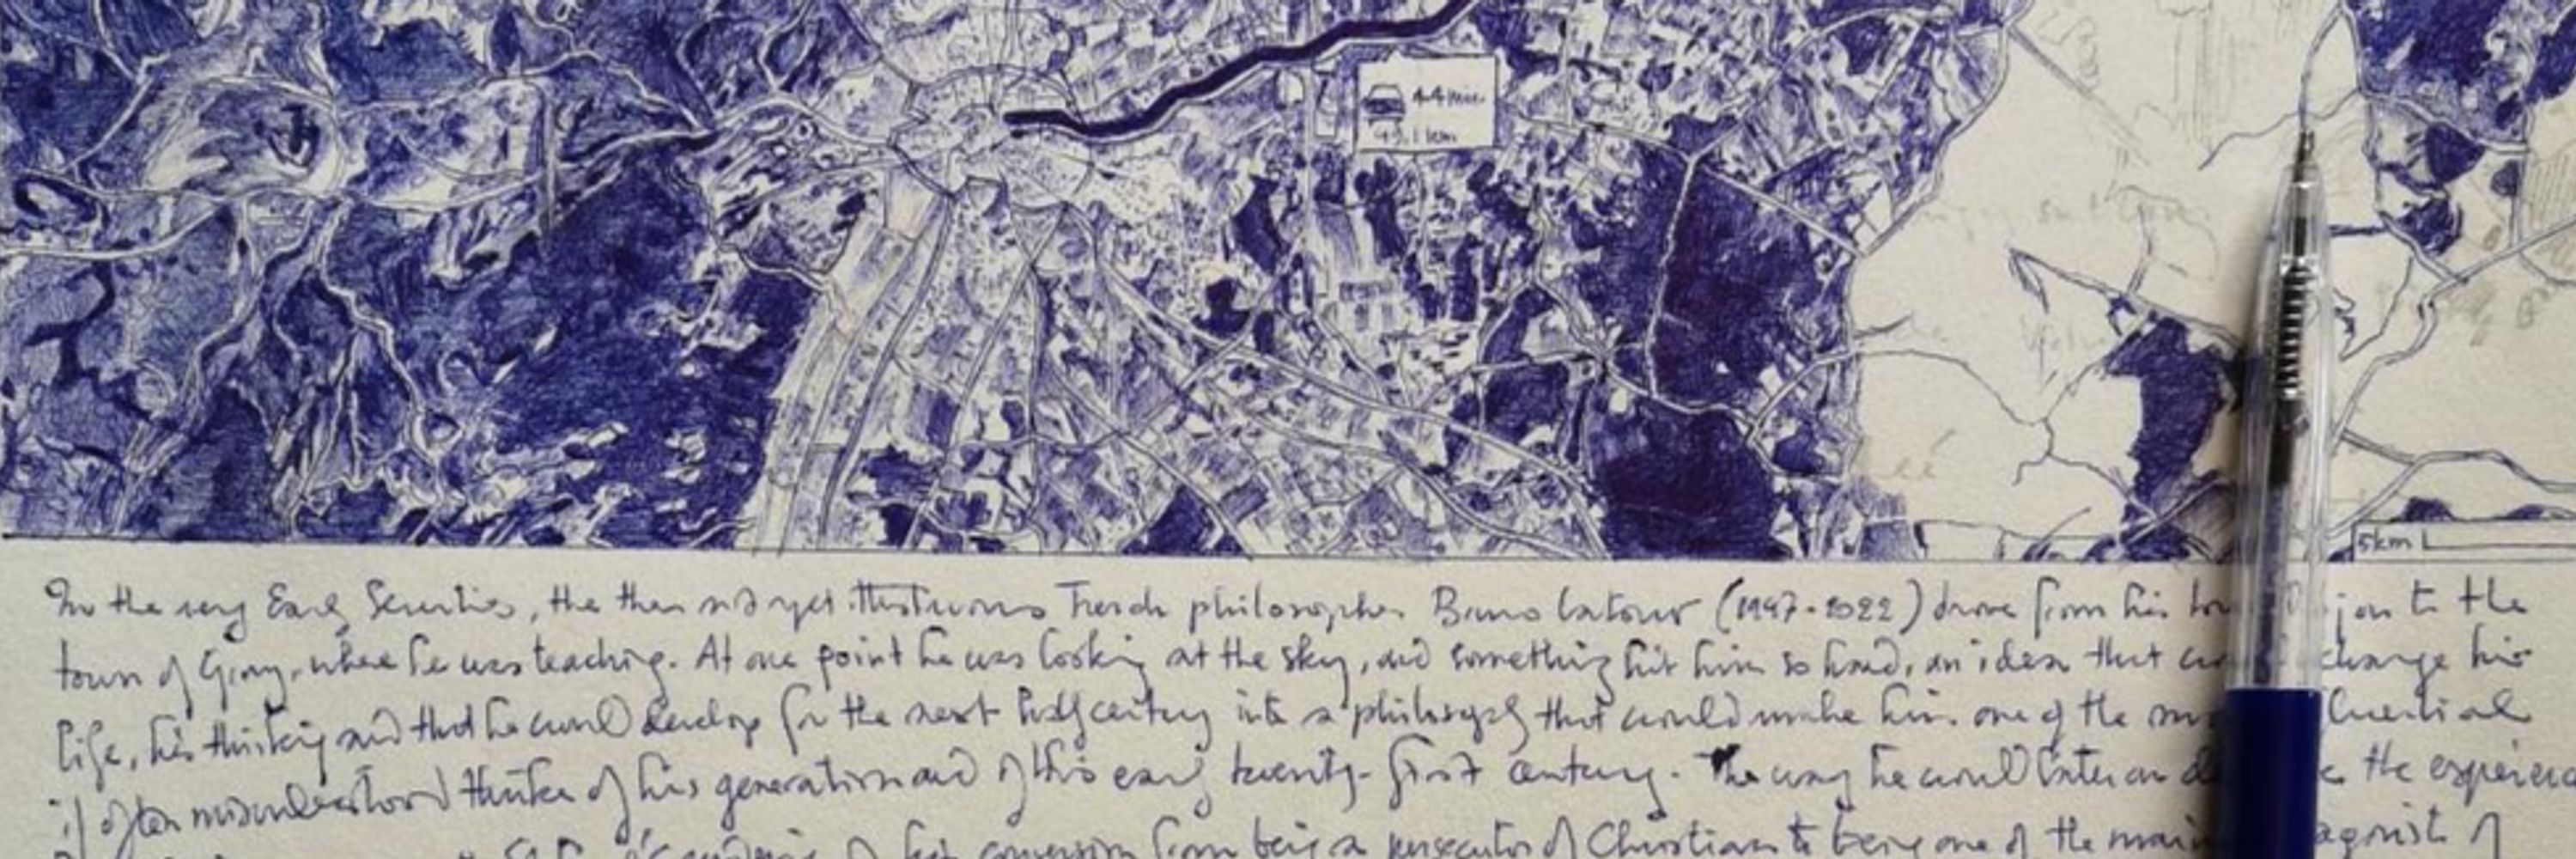 44 min
49.1 km
5km
In the very Early Seventies, the then not yet illustrious French philosopher Bruno Latour (1947-2022) drove from his to the
town of Gray, where he was teaching. At one point he was looking at the sky, and something hit him so hard, an idea that change his
life, his thinking and that he would develop for the next half century into a philosophy that would make him one of the
if often misunderstood thinker of his generation and of this early twenty-first century. The way he would later on the experience
of his conversion from being a persecutor of Christians to being one of the main of